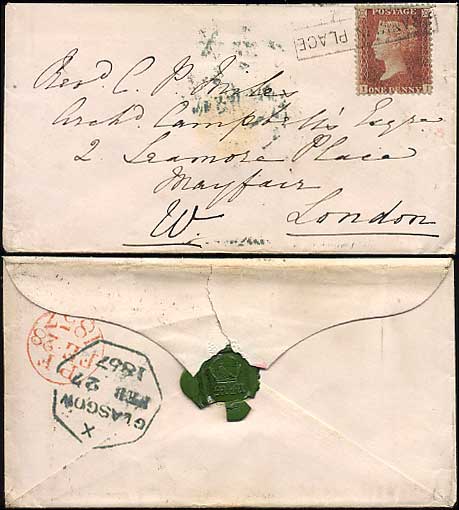 POSTAGE
PLACE
ONE PENNY
Revd. C. P. Miles
Archd. Campbell's Esqre
2. Seamore Place
Mayfair
W. London
PF
FE 28
1857
X
GLASGOW
FEB 27
1857